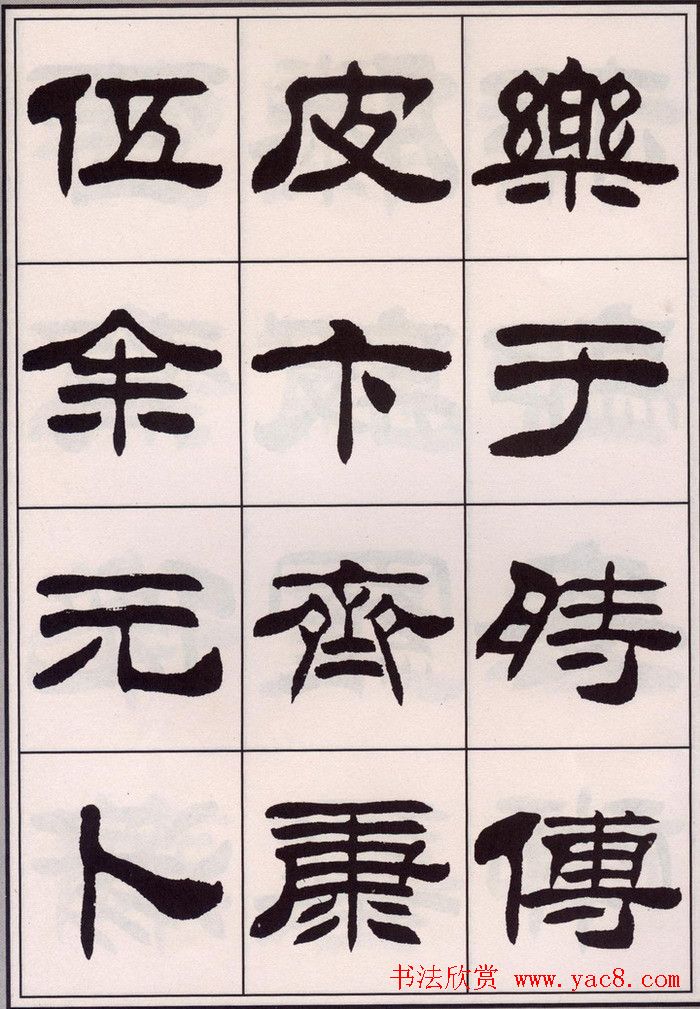 樂于時傅
皮卞齊康
伍余元卜
书法欣赏 www.yac8.com